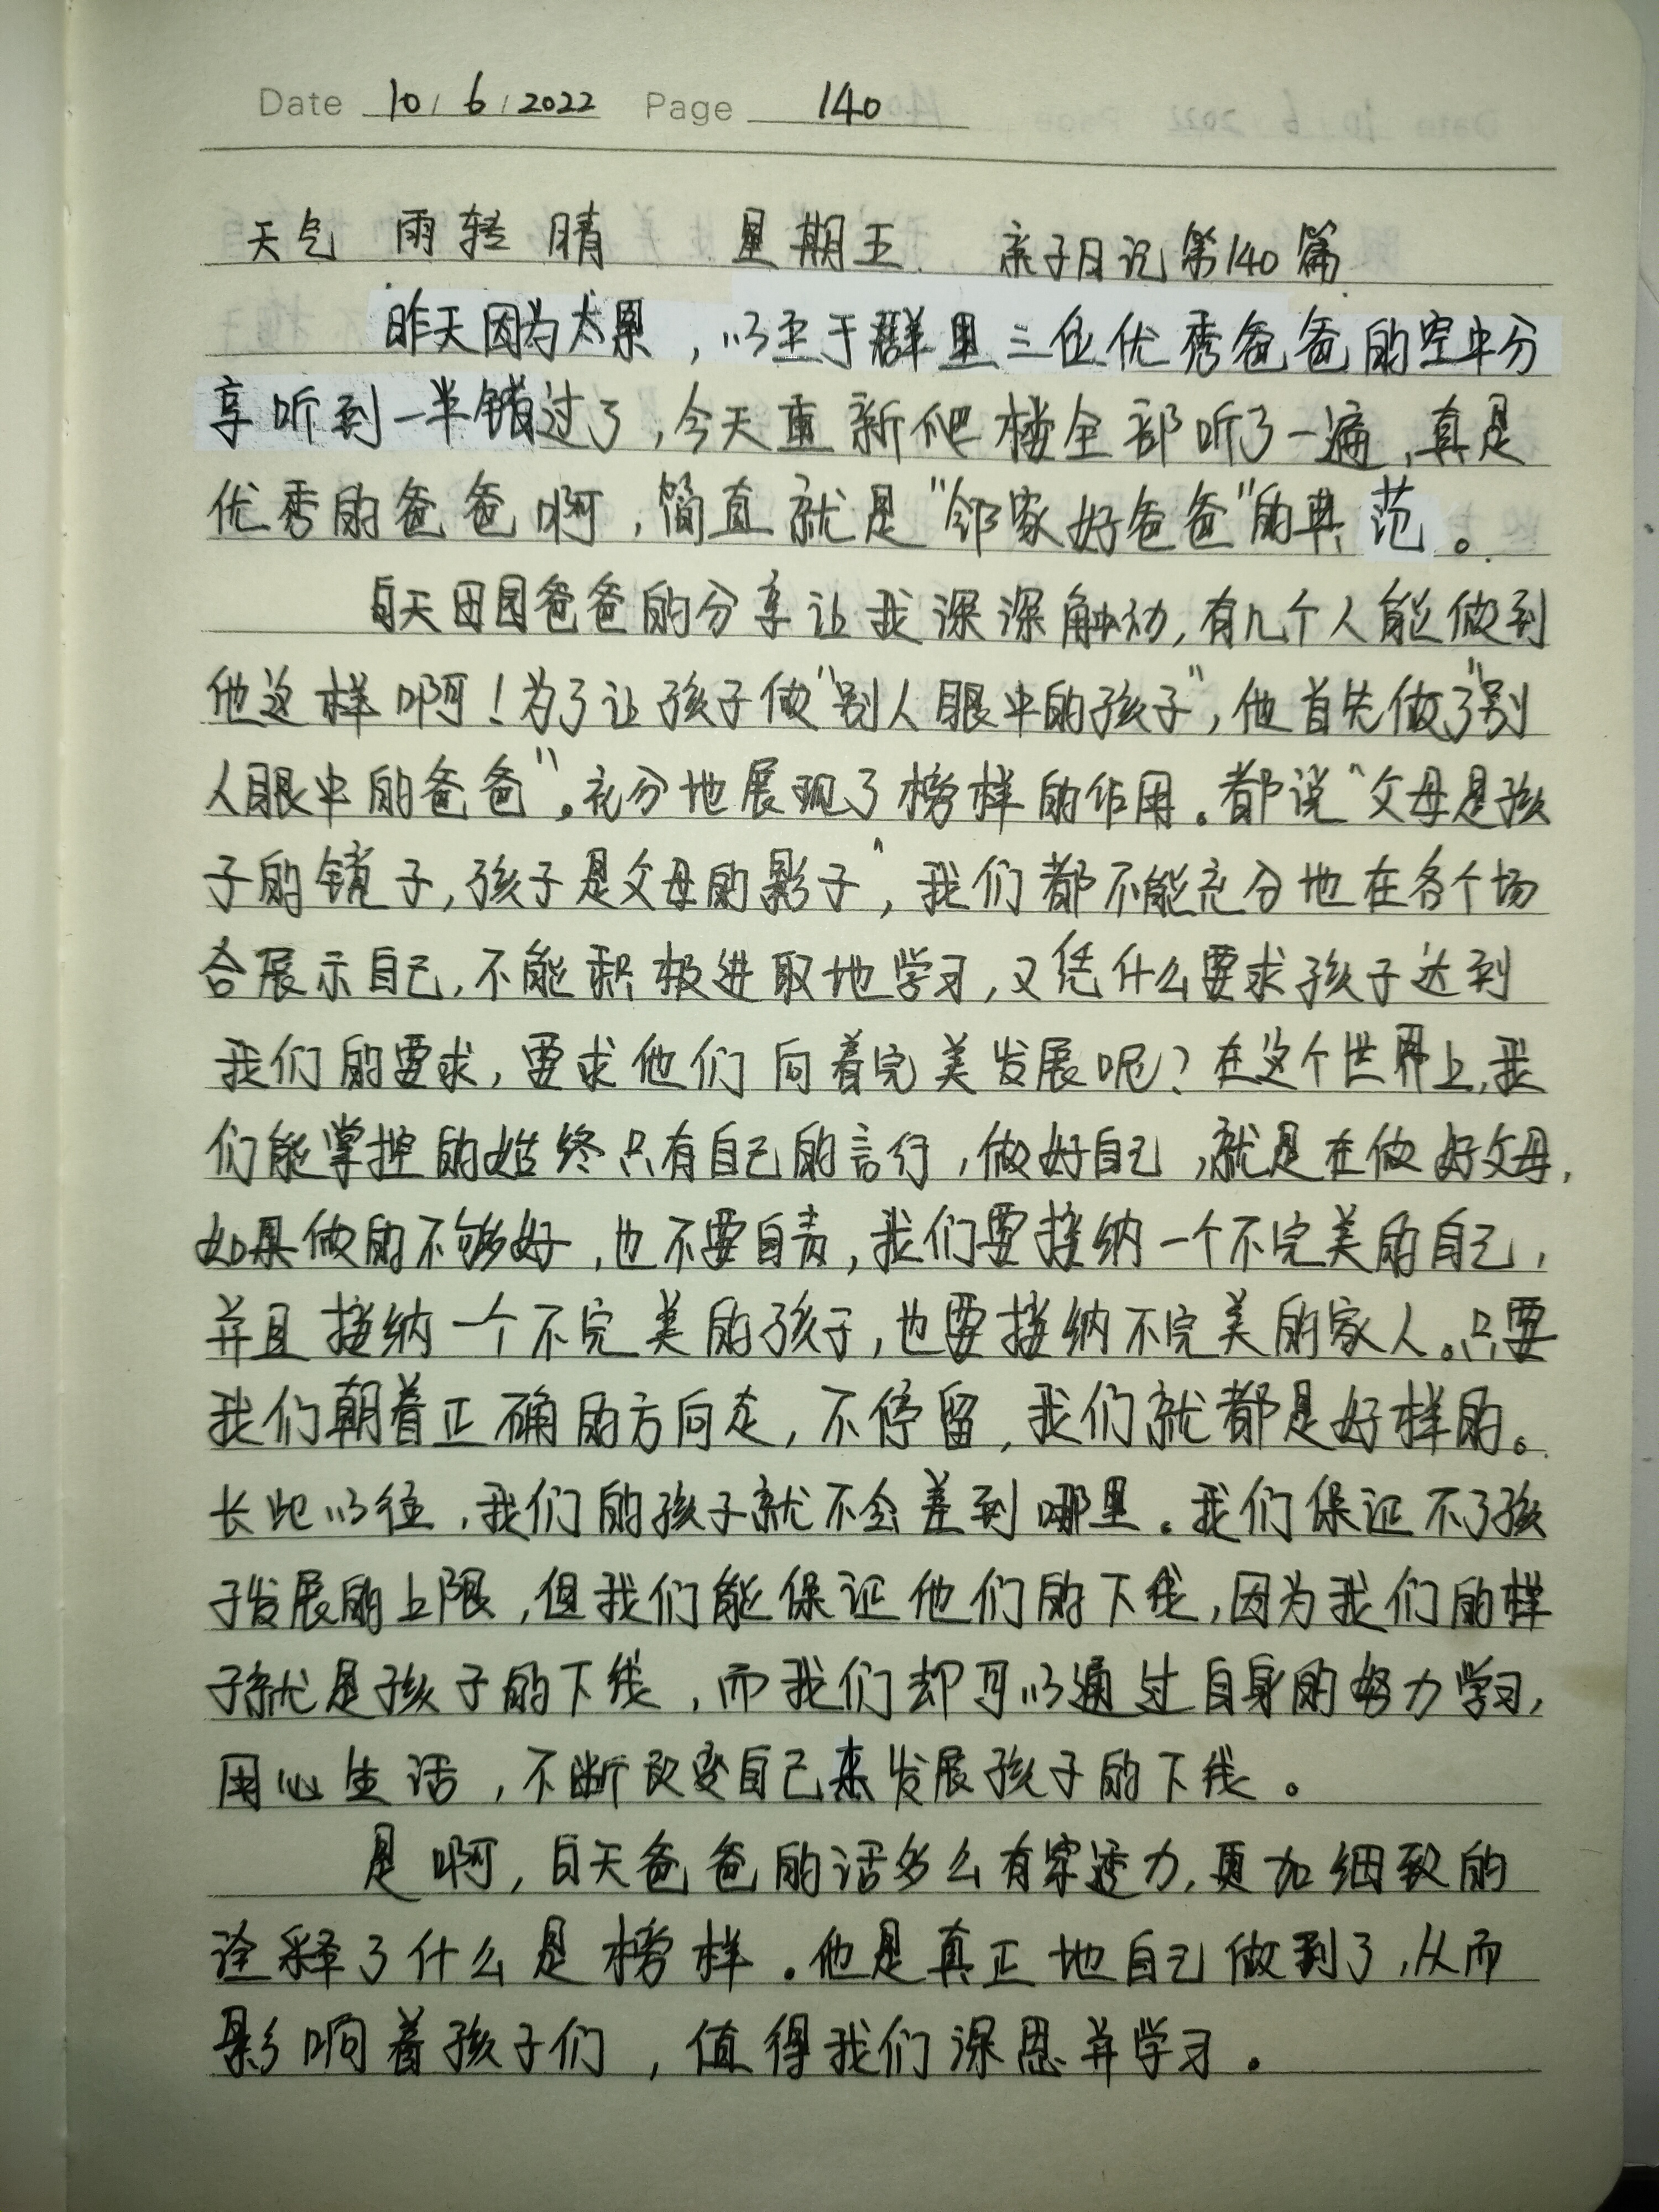 Date 10/6/2022 Page 140
天气 雨转晴 星期五 亲子日记第140篇
昨天因为太累，以至于群里三位优秀爸爸的空中分
享听到一半错过了，今天重新爬楼全部听了一遍，真是
优秀的爸爸啊，简直就是“邻家好爸爸”的典范。
昊天田园爸爸的分享让我深深触动，有几个人能做到
他这样啊！为了让孩子做“别人眼中的孩子”，他首先做了“别
人眼中的爸爸”。充分地展现了榜样的作用。都说“父母是孩
子的镜子，孩子是父母的影子”，我们都不能充分地在各个场
合展示自己，不能积极进取地学习，又凭什么要求孩子达到
我们的要求，要求他们向着完美发展呢？在这个世界上，我
们能掌控的始终只有自己的言行，做好自己，就是在做好父母，
如果做的不够好，也不要自责，我们要接纳一个不完美的自己，
并且接纳一个不完美的孩子，也要接纳不完美的家人。只要
我们朝着正确的方向走，不停留，我们就都是好样的。
长此以往，我们的孩子就不会差到哪里。我们保证不了孩
子发展的上限，但我们能保证他们的下线，因为我们的样
子就是孩子的下线，而我们却可以通过自身的努力学习，
用心生活，不断改变自己来发展孩子的下线。
是啊，昊天爸爸的话多么有穿透力，更加细致的
诠释了什么是榜样。他是真正地自己做到了，从而
影响着孩子们，值得我们深思并学习。